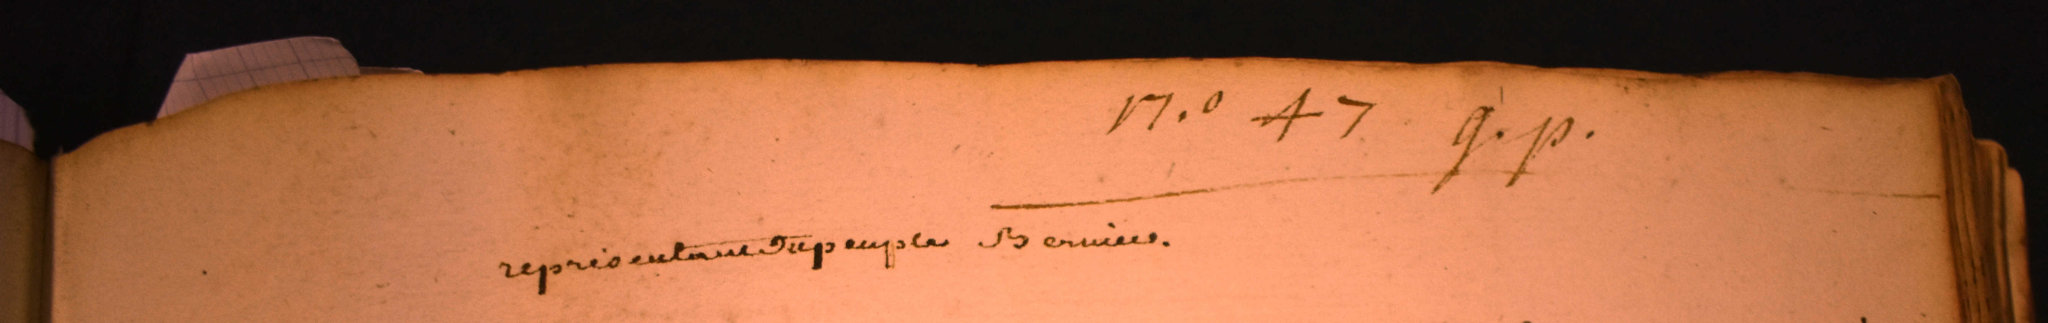 N.º 47 g.p.
représentant Du peuple Bernier.